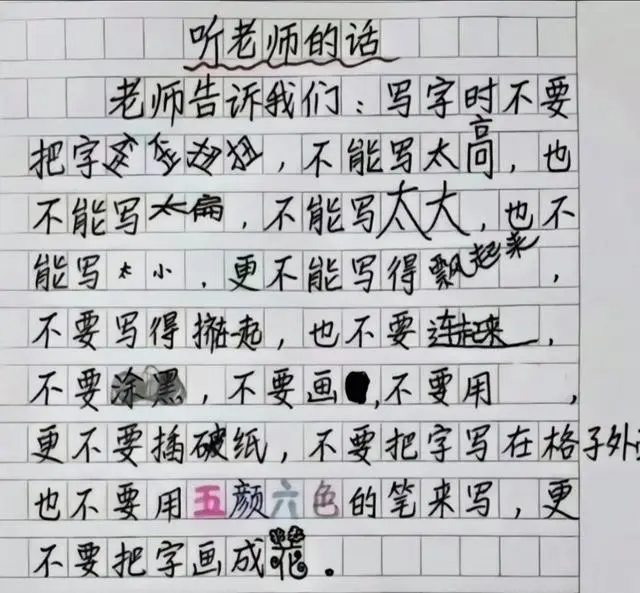 听老师的话
老师告诉我们：写字时不要
把字歪歪扭扭，不能写太高，也
不能写太扁，不能写太大，也不
能写太小，更不能写得飘起来，
不要写得挤一起，也不要连起来，
不要涂黑，不要画●，不要用　，
更不要插破纸，不要把字写在格子外
也不要用五颜六色的笔来写，更
不要把字画成花。